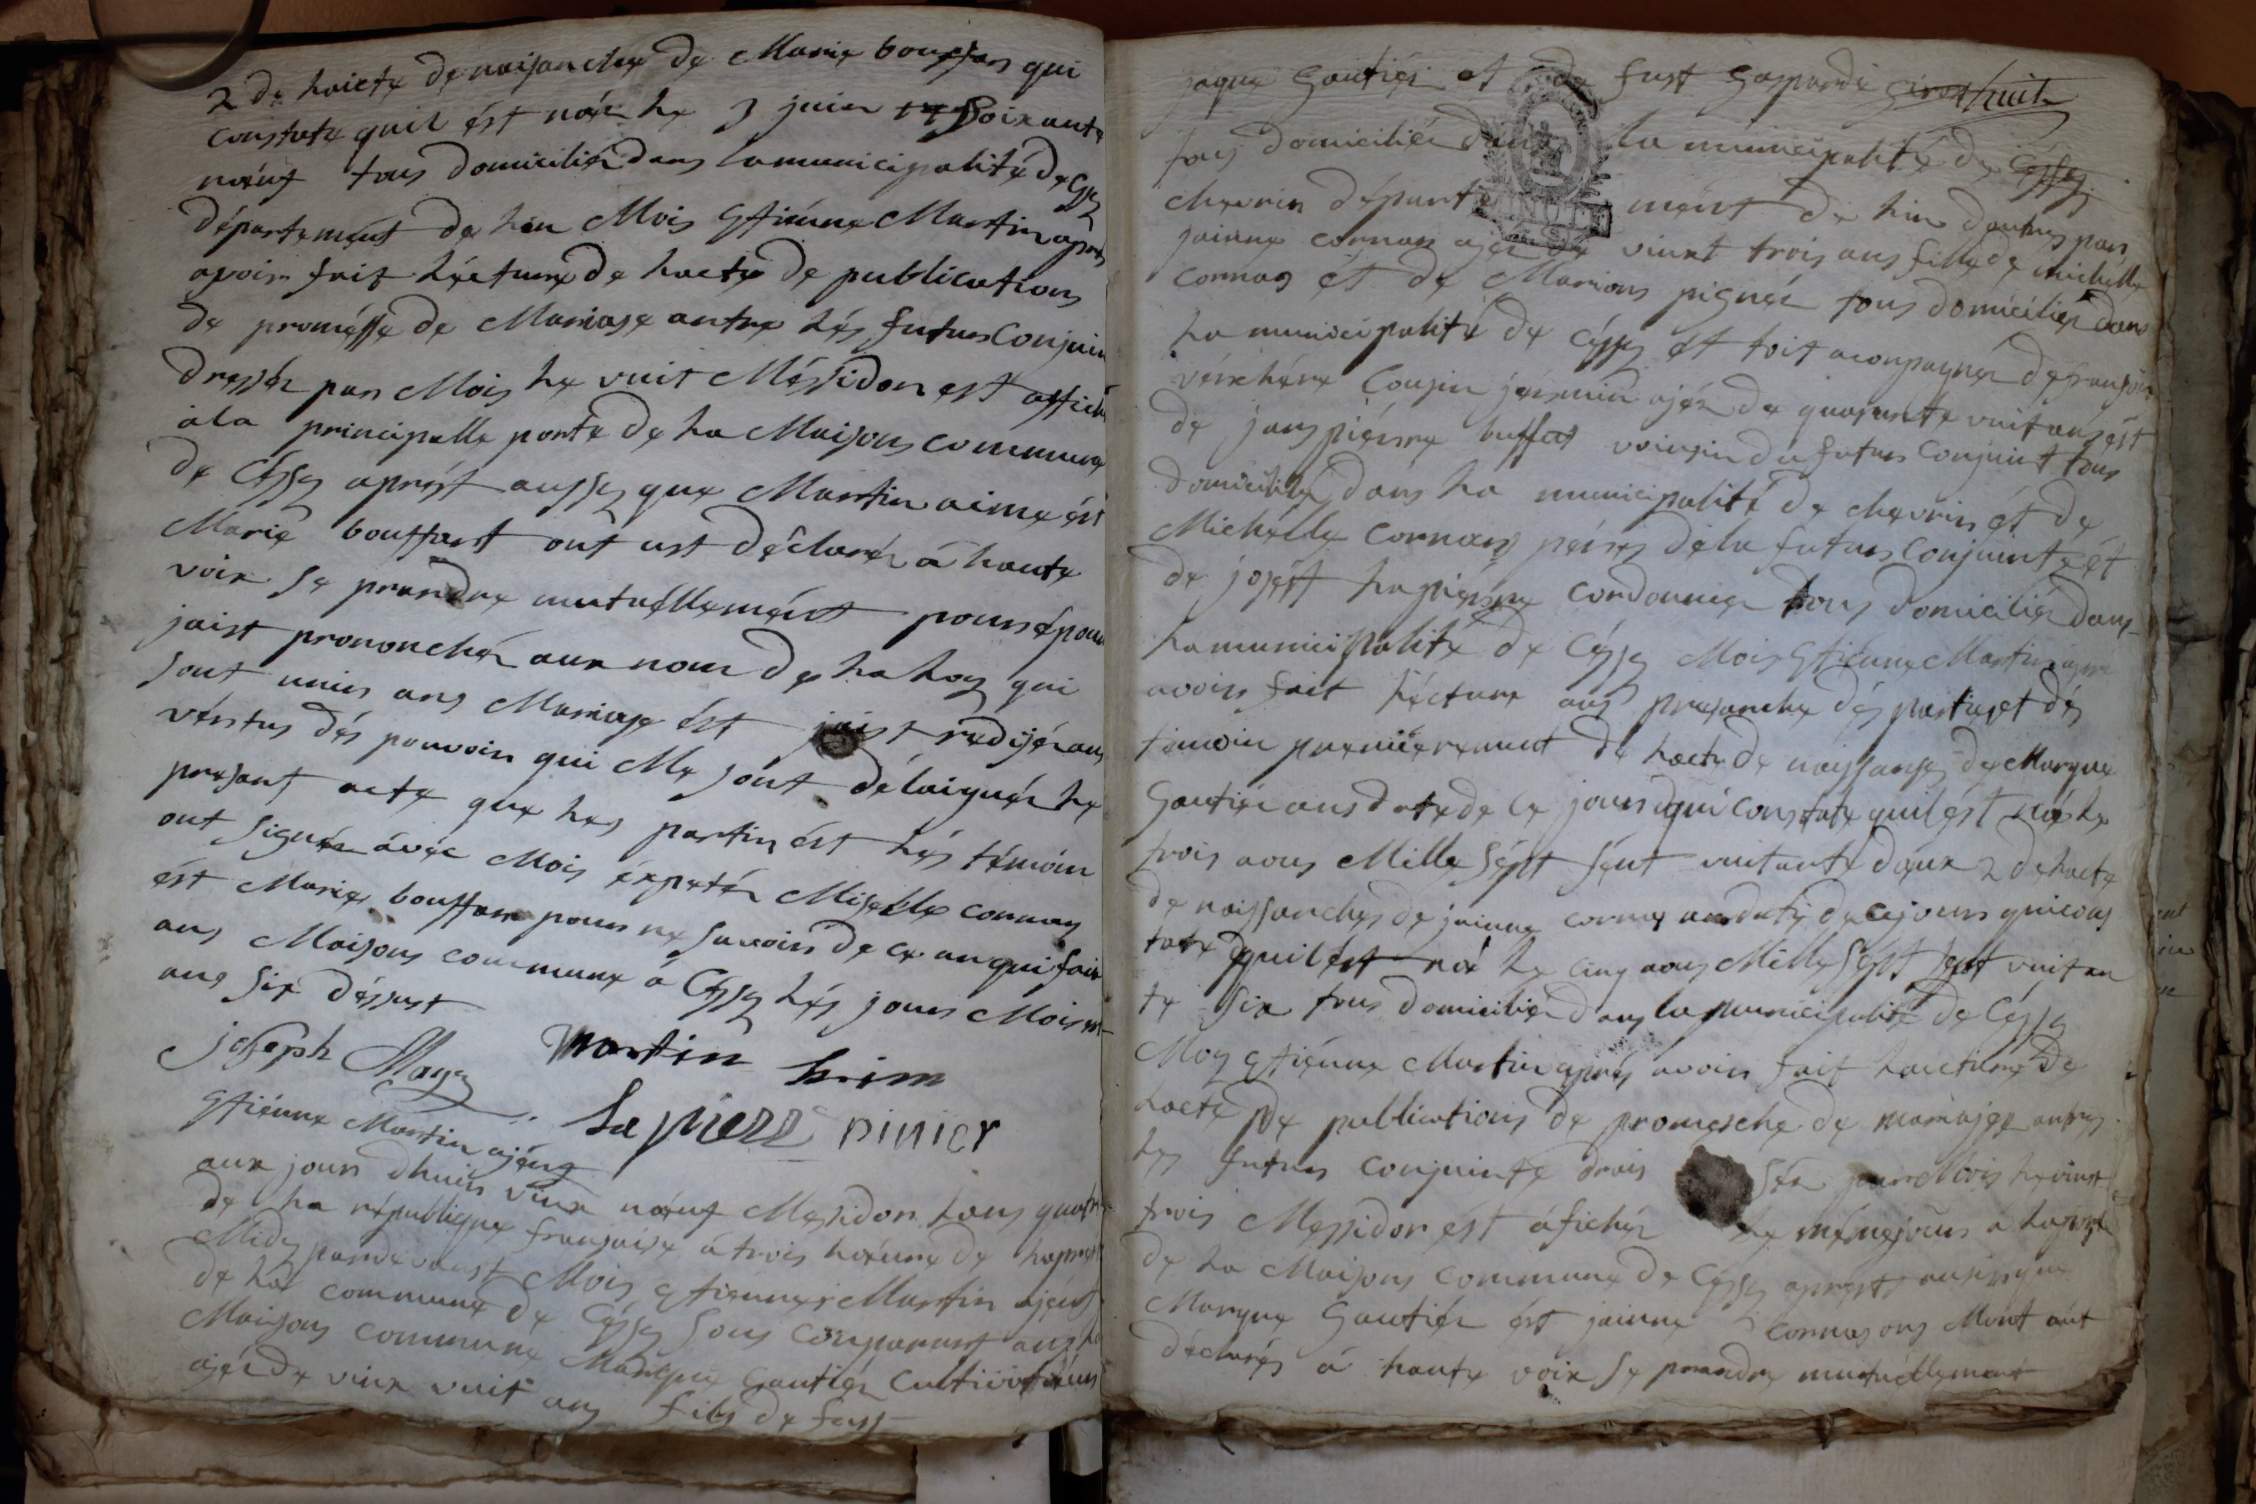 2 de haicte de naisanchre de Marie bouffars qui
constate quil ést náéz he 3 juin 17 soixante
noeuf tous domiciliéz dans la municipalité de Céssy
département de hin Mois Gtiénne Martin aprés
avoir fait hécture de hacte de publications
de promésse de Mariage antre hés futurs Conjoin
dresséz par Mois he vuit Méssidor est affiché
à la principalle porte de ha Maisons commune
de Céssy aprést aussy que Martin aime ést
Marie bouffart ont ust déclaréz á haute
voix se prandre mutuéllemént pour épou
jaist prononchéz aux nom de ha hoy qui
sont unies ans Mariage ést jaist redigéz ans
vértus dés pouvoir qui Me sont délaiguéz he
presant acte que hes partis ést hés témoin
ont signéz avéc Mois éxpetéz Miselle cornus
ést Marie bouffars pour ne savoir de ce anqui fair
ans Maisons commune á Céssy hés jours Mois et
ans six déssust
joseph Mary Martin hrim
Gtiénne Martin ajént Lapierre pinier
aux jours dhuis vinx noeuf Messidor hans quatre
de ha républigue fransaise á trois hoéure de hapres
Midy pardevanst Mois Gtienne Martin ajént
de ha commune de Céssy sons comparust ans ha
Maisons commune Marque Gautiéz Cultivatéurs
ajéz de vinx vuit ans fils de fust
jaque Gautiéz et de fust Gasparde Girod huit
tous domiciliéz dans la municipalité de Céssy
chevrin départe mént de hin dautres par
jainne cornus ajéz de vinxt trois ans fille de michelle
cornus ét de Marions pignéz tous domiciliéz dans
ha municipalité de Céssy ést soit aconpagnéz de fransois
vérchére Cousin jérmin ajéz de quarante vuit ans ést
de jans piérre buffat voirsin du futur conjoint tous
domicilié dans ha municipalité de chevrin ét de
Michelle cornus pére de la futurs conjointe ét
de joséft hapierre cordonnier tous domiciliéz dans
ha municipalité de Céssy Mois Gtiénne Martin apre
avoirs fait hécture ans presanche dés partis et dés
témoin premiérement de hacte de naissanse de Marque
Gautiéz ans date de ce jours qui constate quil ést náé he
trois aous Mille sépt sént vuitante daux 2 de hacte
de naissanches de jainne cornus ans date de ce jours qui cons
tate quil ést náé he cinq aous Mille sépt sent vuitan
te six tous domiciliéz dans la municipalité de Céssy
Moy Gtiénne Martin aprés avoir fait hécture de
hacte de publications de promesche de mariajes antres
hes futurs conjointe drois séz par Mois he vinxt
trois Messidor ést áfichéz he mémejours a haporte
de ha Maisons commune de Céssy aprést ausis que
Marque Gautiéz ést jainne cornus ons Mont aut
déclaréz á haute voix se prandre mutuéllement